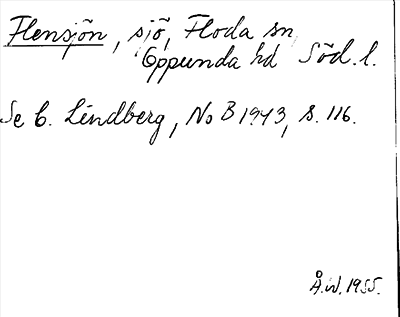 Flensjön, sjö, Floda sn
Oppunda hd Söd. l.
Se C. Lindberg, No B 1943, s. 116.
Å.W. 1955.